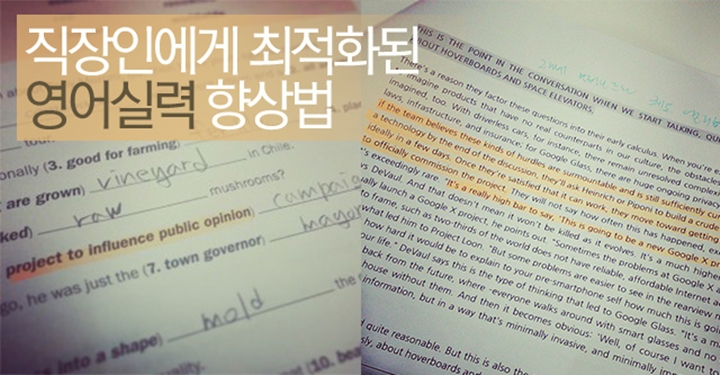 직장인에게 최적화된
영어실력 향상법
onally (3. good for farming)
are grown) vineyard in Chile.
ked) raw mushrooms?
project to influence public opinion) campaig
go, he was just the (7. town governor) mayor
mold the
into a shape)
(10. bea
THIS IS THE POINT IN THE CONVERSATION WHEN WE START TALKING, QU
ABOUT HOVERBOARDS AND SPACE ELEVATORS.
There's a reason they factor these questions into their early calculus. When you're
imagine products that have no real counterparts in our culture, the obstacles
imagined, too. With driverless cars, for instance, there remain unresolved comple
laws, infrastructure, and insurance; for Google Glass, there are huge ongoing priva
If the team believes these kinds of hurdles are surmountable and is still sufficiently cu
a technology by the end of the discussion, they'll ask Heinrich or Piponi to build a crude
ideally in a few days. Once they're satisfied that it can work, they move toward getting
to officially commission the project. They will not say how often this has happened, ex
's exceedingly rare. "It's a really high bar to say, 'This is going to be a new Google X pr
ys DeVaul. And that doesn't mean it won't be killed as it evolves. "It's a much higher
ally launch a Google X project," he points out. "Sometimes the problems at Google X
to frame, such as two-thirds of the world does not have reliable, affordable Internet a
what led him to Project Loon. "But some problems are easier to see in the rearview
how hard it would be to explain to your pre-smartphone self how much this is going
our life." DeVaul says this is the type of thinking that led to Google Glass. "It's a m
back from the future, where everyone walks around with smart glasses and no
house without them. And then it becomes obvious: 'Well, of course I want to
information, but in a way that's minimally invasive, and minimally imp
d quite reasonable. But this is also the
sly, about hoverboards and